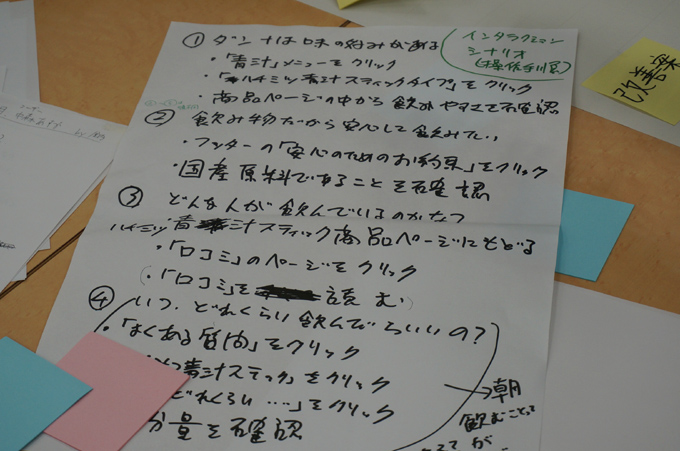 インタラクション
シナリオ
(操作手順)
改善案
① ダンナは味の好みがある
・「青汁」メニューをクリック
・「ハチミツ青汁スティックタイプ」をクリック
・商品ページの中から飲みやすさを確認
② 飲み物だから安心して飲みたい
・フッターの「安心のためのお約束」をクリック
・国産原料であることを確認
③ どんな人が飲んでいるのかな?
ハチミツ青汁スティック商品ページにもどる
・「口コミ」のページをクリック
(・「口コミ」を読む)
④ いつ、どれくらい飲んだらいいの?
・「よくある質問」をクリック
青汁スティック」をクリック
どれくらい....」をクリック
分量を確認
→朝
飲むことって